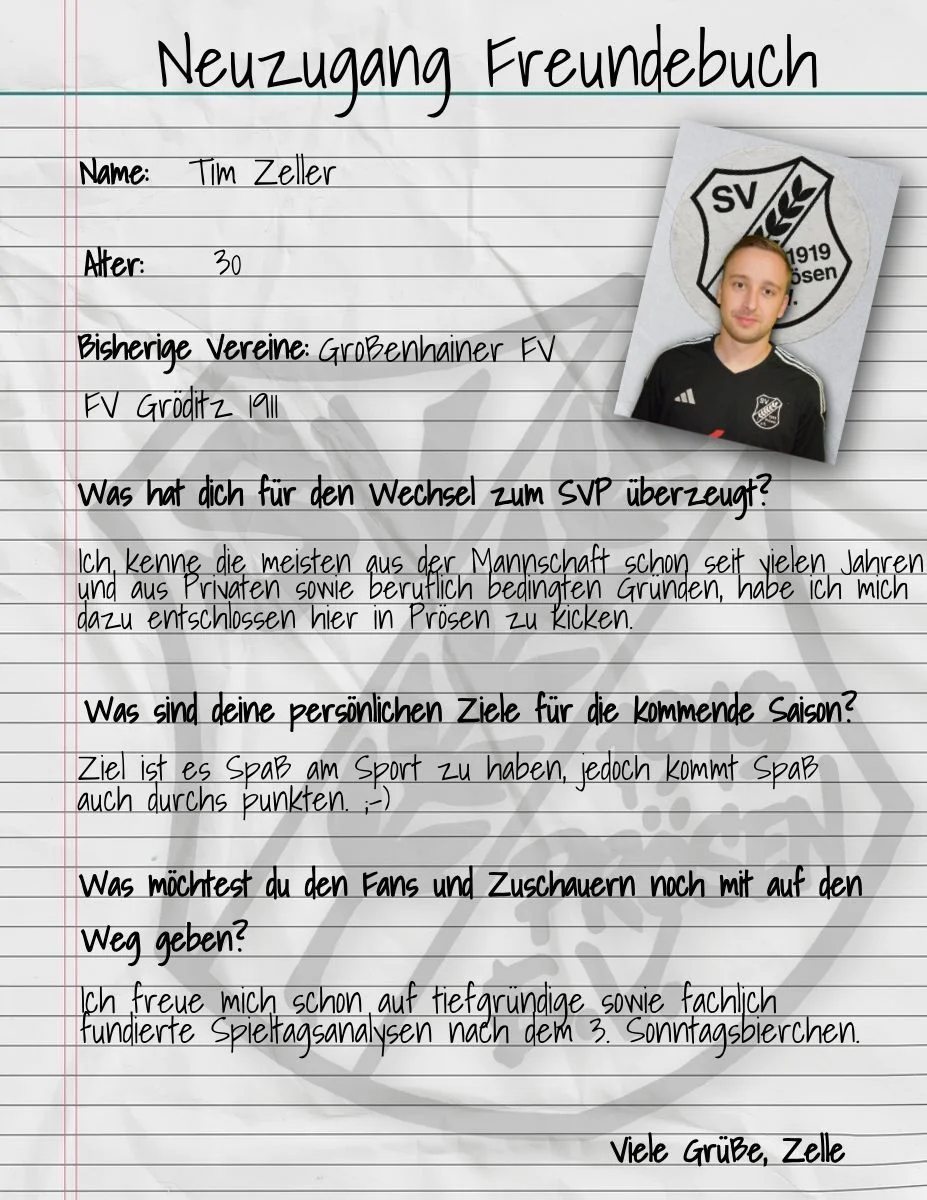 Neuzugang Freundebuch
Name: Tim Zeller
SV
1919
ösen
Alter: 30
Bisherige Vereine: Großenhainer FV
FV Gröditz 1911
Was hat dich für den Wechsel zum SVP überzeugt?
Ich kenne die meisten aus der Mannschaft schon seit vielen Jahren
und aus Privaten sowie beruflich bedingten Gründen, habe ich mich
dazu entschlossen hier in Prösen zu kicken.
Was sind deine persönlichen Ziele für die kommende Saison?
Ziel ist es Spaß am Sport zu haben, jedoch kommt Spaß
auch durchs punkten. ;-)
Was möchtest du den Fans und Zuschauern noch mit auf den
Weg geben?
Ich freue mich schon auf tiefgründige sowie fachlich
fundierte Spieltagsanalysen nach dem 3. Sonntagsbierchen.
Viele Grüße, Zelle
SV
1919
PRÖSEN
e.V.